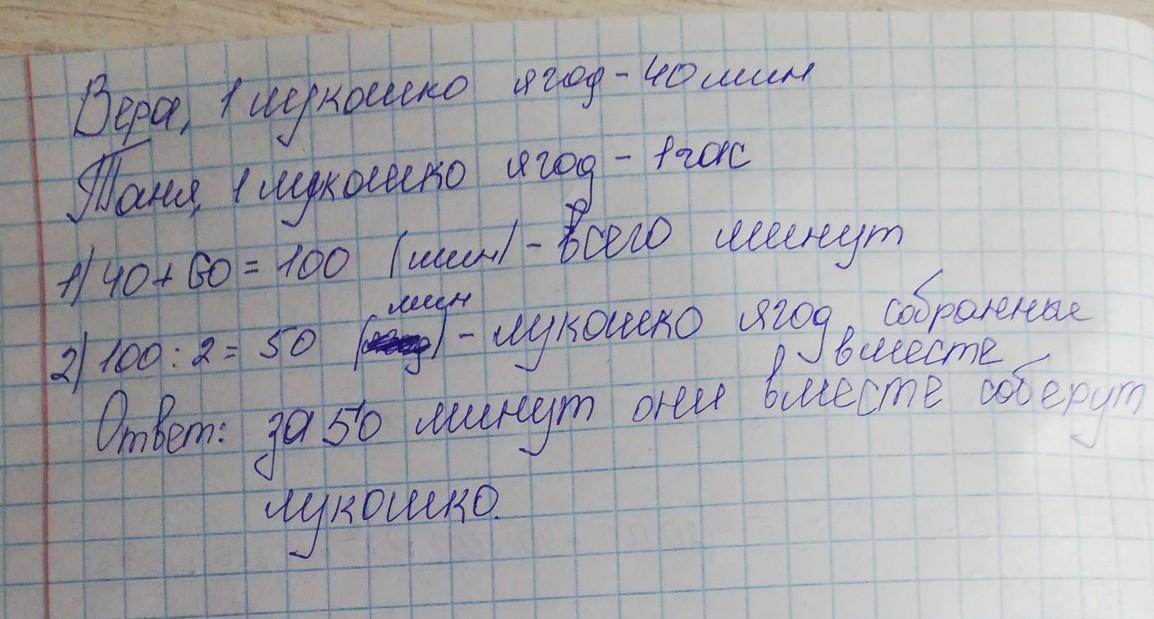 Вера, 1 лукошко ягод - 40 мин
Таня, 1 лукошко ягод - 1 час
1) 40 + 60 = 100 (мин) - всего минут
2) 100 : 2 = 50 (мин) - лукошко ягод, собранные вместе
Ответ: за 50 минут они вместе соберут
лукошко.